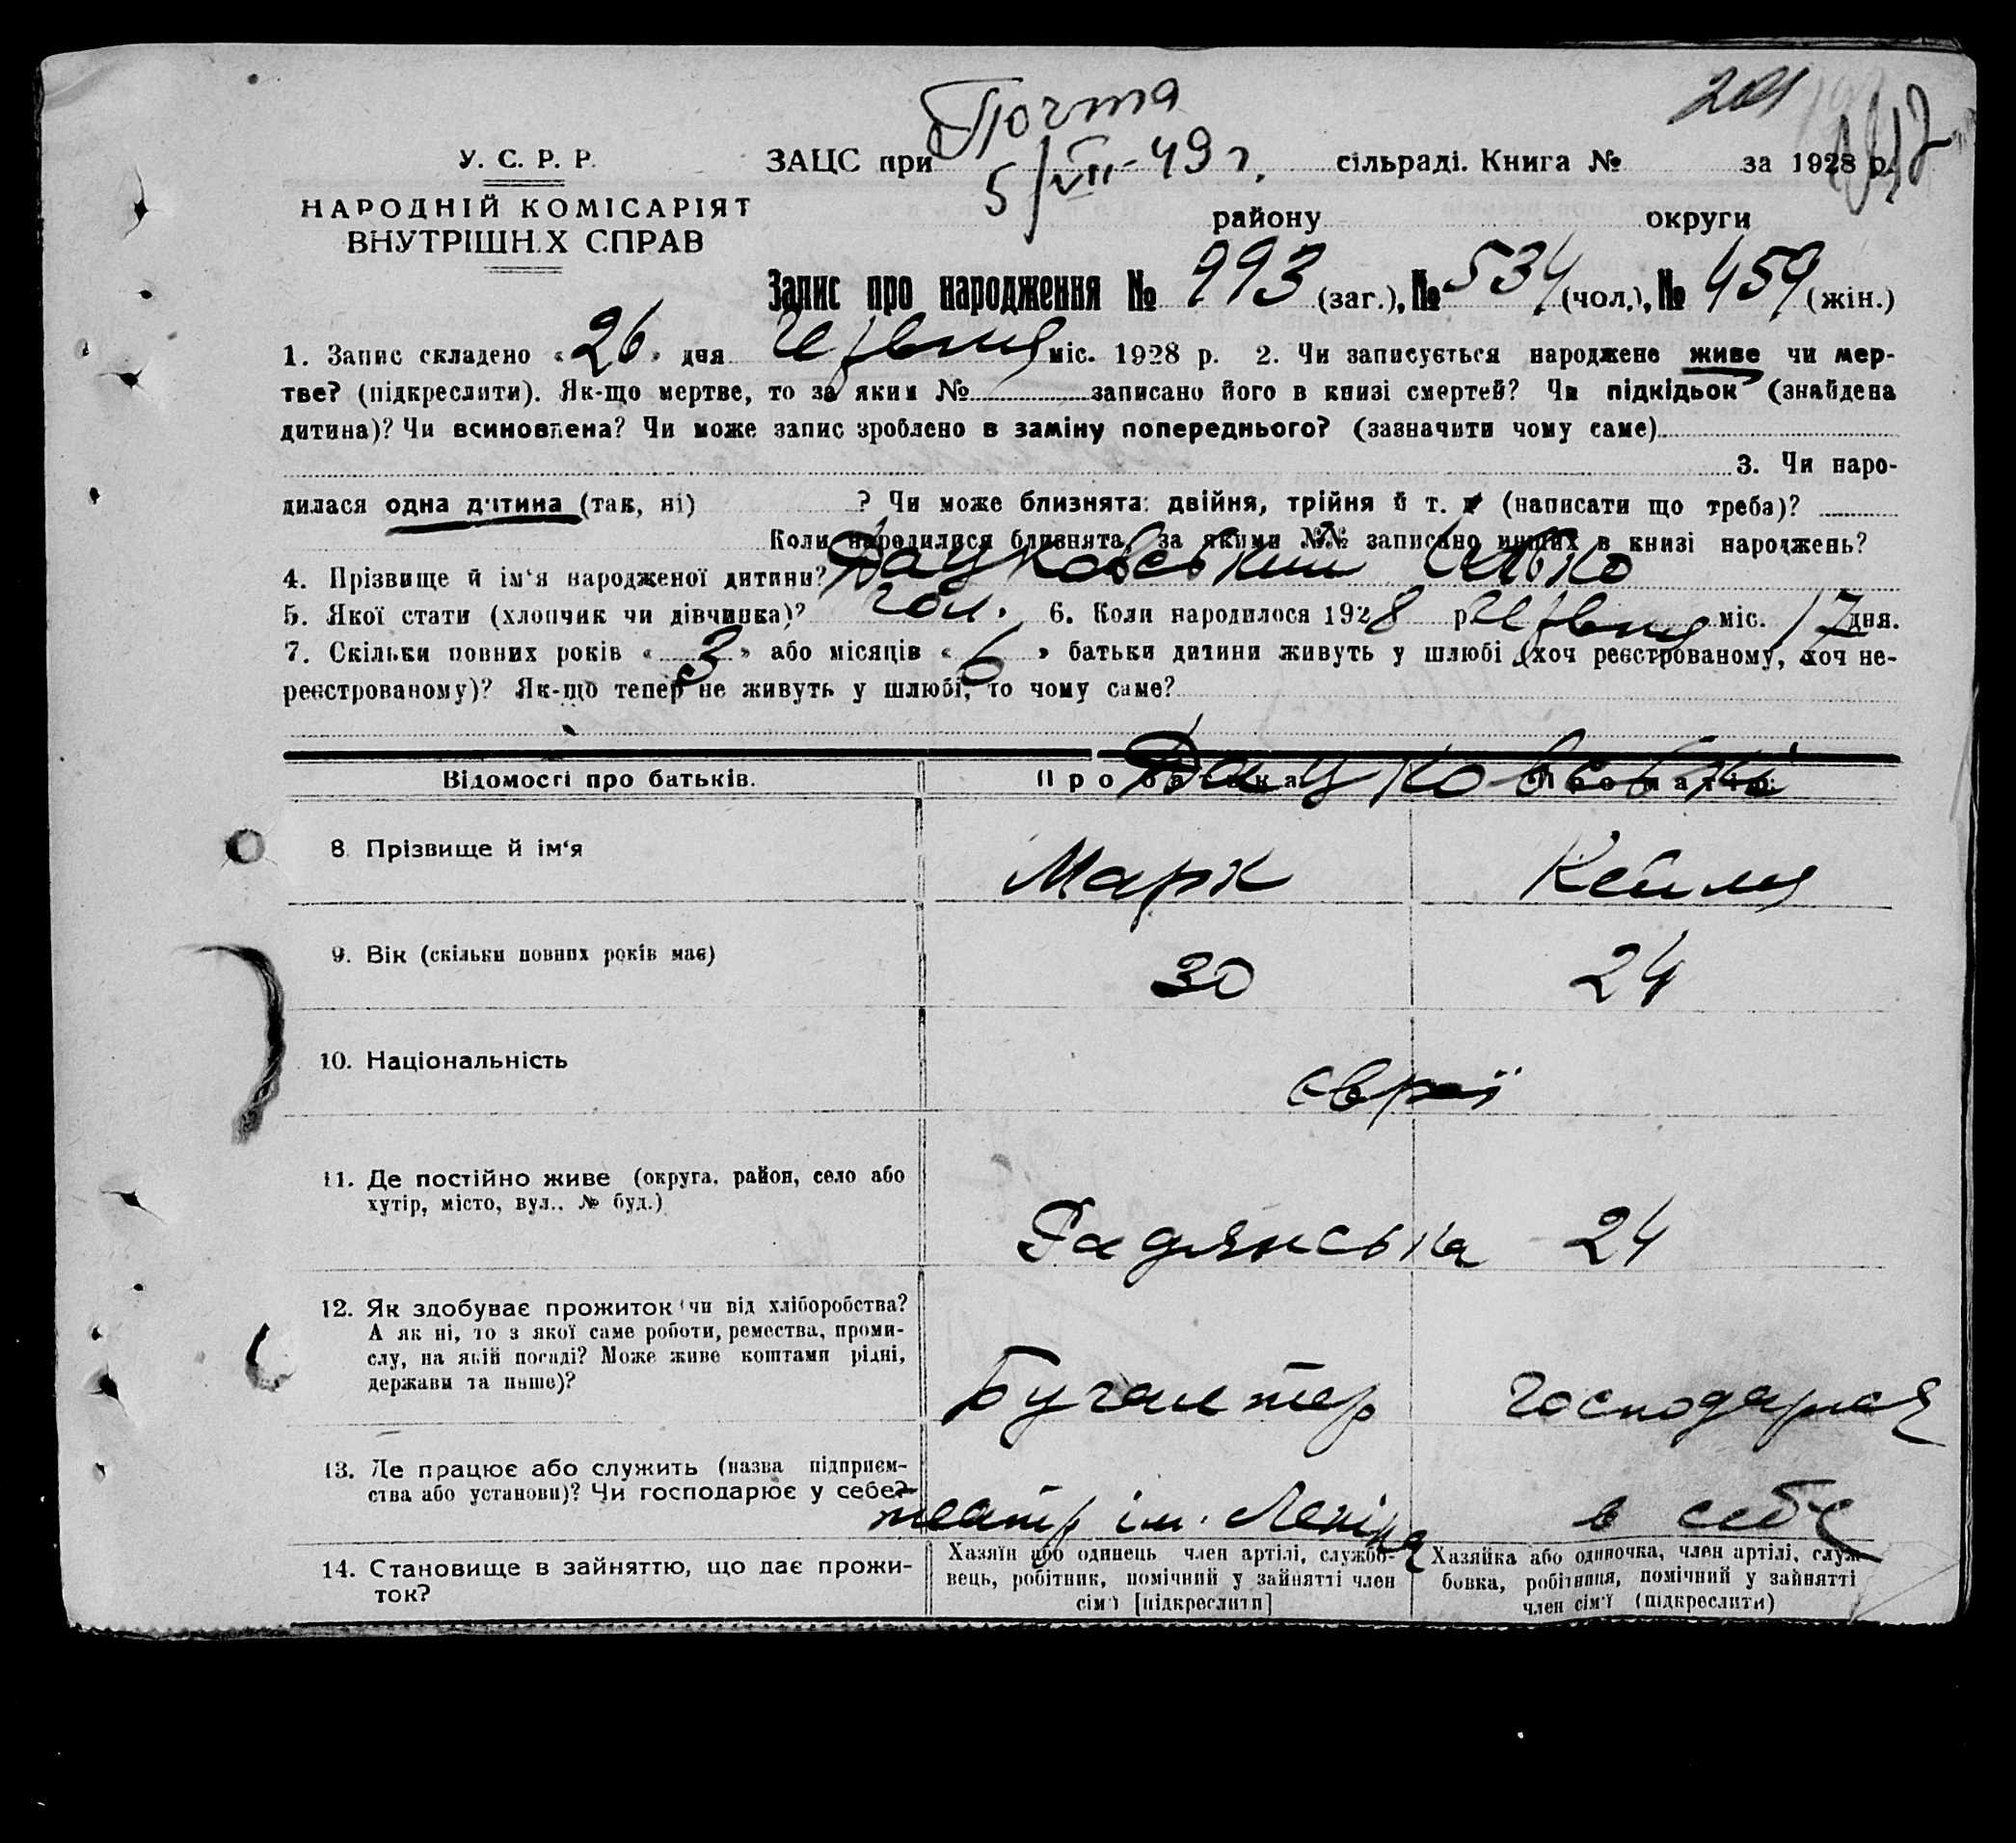 Почта
5/VII-49 г.
201
У. С. Р. Р.
НАРОДНІЙ КОМІСАРІЯТ
ВНУТРІШН.Х СПРАВ
ЗАЦС при сільраді. Книга № за 1928 р.
району округи
Запис про народження № 993 (заг.), № 534 (чол.), № 459 (жін.)
1. Запис складено «26» дня червня міс. 1928 р. 2. Чи записується народжене живе чи мер-
тве? (підкреслити). Як-що мертве, то за яким № записано його в книзі смертей? Чи підкідьок (знайдена
дитина)? Чи всиновлена? Чи може запис зроблено в заміну попереднього? (зазначити чому саме)
3. Чи наро-
дилася одна дитина (так, ні) ? Чи може близнята: двійня, трійня й т. (написати що треба)?
Коли народилися близнята, за якими №№ записано инших в книзі народжень?
4. Прізвище й ім'я народженої дитини?
5. Якої стати (хлопчик чи дівчинка)? чол. 6. Коли народилося 1928 р. червня міс. 17 дня.
7. Скільки повних років «3» або місяців «6» батьки дитини живуть у шлюбі (хоч реєстрованому, хоч не-
реєстрованому)? Як-що тепер не живуть у шлюбі, то чому саме?
Відомості про батьків. Про батька Про матір
8. Прізвище й ім'я Марк Кейля
9. Вік (скільки повних років має) 30 24
10. Національність євреї
11. Де постійно живе (округа, район, село або
хутір, місто, вул., № буд.)
Радянська 24
12. Як здобуває прожиток (чи від хліборобства?
А як ні, то з якої саме роботи, ремества, проми-
слу, на якій посаді? Може живе коштами рідні,
держави та инше)?
Бугалтер господарка
13. Де працює або служить (назва підприєм-
ства або установи)? Чи господарює у себе?
театр ім. Леніна в себе
14. Становище в зайняттю, що дає прожи-
ток?
Хазяїн або одинець член артілі, службо-
вець, робітник, помічний у зайнятті член
сім'ї [підкреслити]
Хазяйка або одиночка, член артілі, служ-
бовка, робітниця, помічний у зайнятті
член сім'ї (підкреслити)